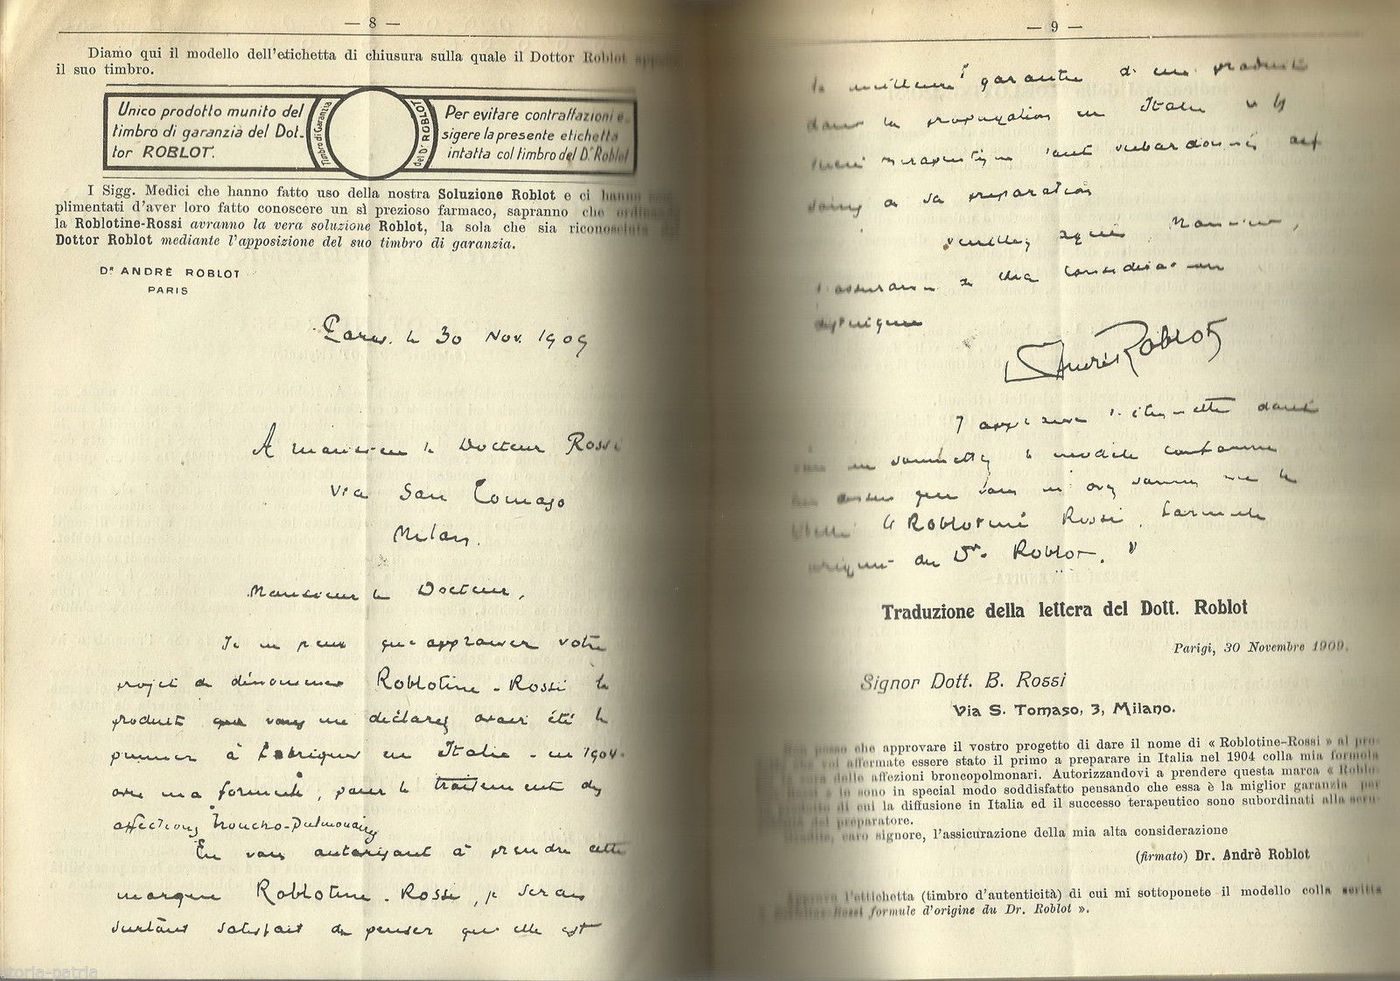 — 8 —
Diamo qui il modello dell'etichetta di chiusura sulla quale il Dottor Roblot
il suo timbro.
Unico prodotto munito del
timbro di garanzia del Dot-
tor ROBLOT.
Timbro di Garanzia
del Dr ROBLOT
Per evitare contraffazioni e-
sigere la presente etichetta
intatta col timbro del Dr Roblot
I Sigg. Medici che hanno fatto uso della nostra Soluzione Roblot e ci hanno
plimentati d'aver loro fatto conoscere un sì prezioso farmaco, sapranno che
la Roblotine-Rossi avranno la vera soluzione Roblot, la sola che sia riconosciuta
Dottor Roblot mediante l'apposizione del suo timbro di garanzia.
Dr ANDRÉ ROBLOT
PARIS
Paris. le 30 Nov. 1909
A monsieur le Docteur Rossi
Via San Tomaso
Milan.
Monsieur le Docteur,
Je ne peux que approuver votre
projet de dénommer Roblotine-Rossi le
produit que vous me déclarez avoir été le
premier à fabriquer en Italie - en 1904.
avec ma formule, pour le traitement des
affections broncho-Pulmonaires
En vous autorisant à prendre cette
marque Roblotine-Rossi, je serais
surtout satisfait de penser que elle est
— 9 —
la meilleure garantie d'un produit
dont la propagation en Italie
à sa préparation
veuillez agréer Monsieur,
l'assurance de ma considération
André Roblot
J'approuve l'étiquette dont
le modèle conforme
Roblotine Rossi. formule
du Dr. Roblot. "
Traduzione della lettera del Dott. Roblot
Parigi, 30 Novembre 1909.
Signor Dott. B. Rossi
Via S. Tomaso, 3, Milano.
Non posso che approvare il vostro progetto di dare il nome di « Roblotine-Rossi » al pro-
che voi affermate essere stato il primo a preparare in Italia nel 1904 colla mia formola
cura delle affezioni broncopolmonari. Autorizzandovi a prendere questa marca « Roblo-
Rossi » io sono in special modo soddisfatto pensando che essa è la miglior garanzia per
di cui la diffusione in Italia ed il successo terapeutico sono subordinati alla
del preparatore.
caro signore, l'assicurazione della mia alta considerazione
(firmato) Dr. Andrè Roblot
Approvo l'etichetta (timbro d'autenticità) di cui mi sottoponete il modello colla scritta
Rossi formule d'origine du Dr. Roblot ».
storia-patria